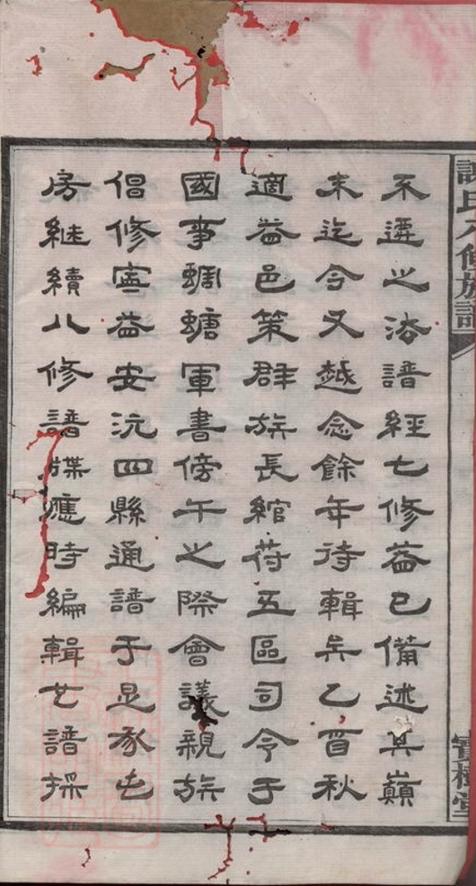 氏八修族譜
不遷之法譜經七修益已備述其巔
末迄今又越念餘年待輯矣乙酉秋
適益邑策群族長綰符五區司令于
國事蜩螗軍書傍午之際會議親族
倡修寧益安沅四縣通譜于是承屯
房継續八修譜牒應時編輯女譜採